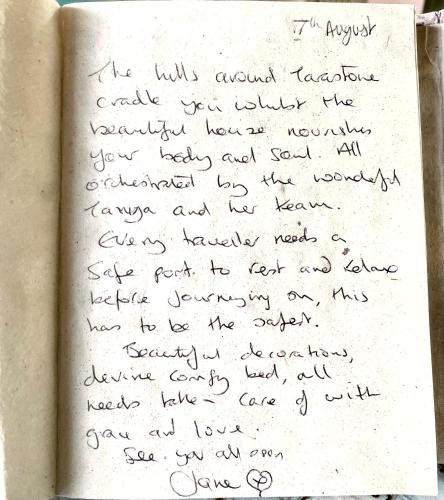 17th August
The hills around Tarastone
cradle you whilst the
beautiful house nourishes
your body and soul. All
orchestrated by the wonderful
and her team.
Every traveller needs a
safe port to rest and relax
before journeying on, this
has to be the safest.
Beautiful decorations,
devine comfy bed, all
needs taken care of with
grace and love.
See you all soon
Jane